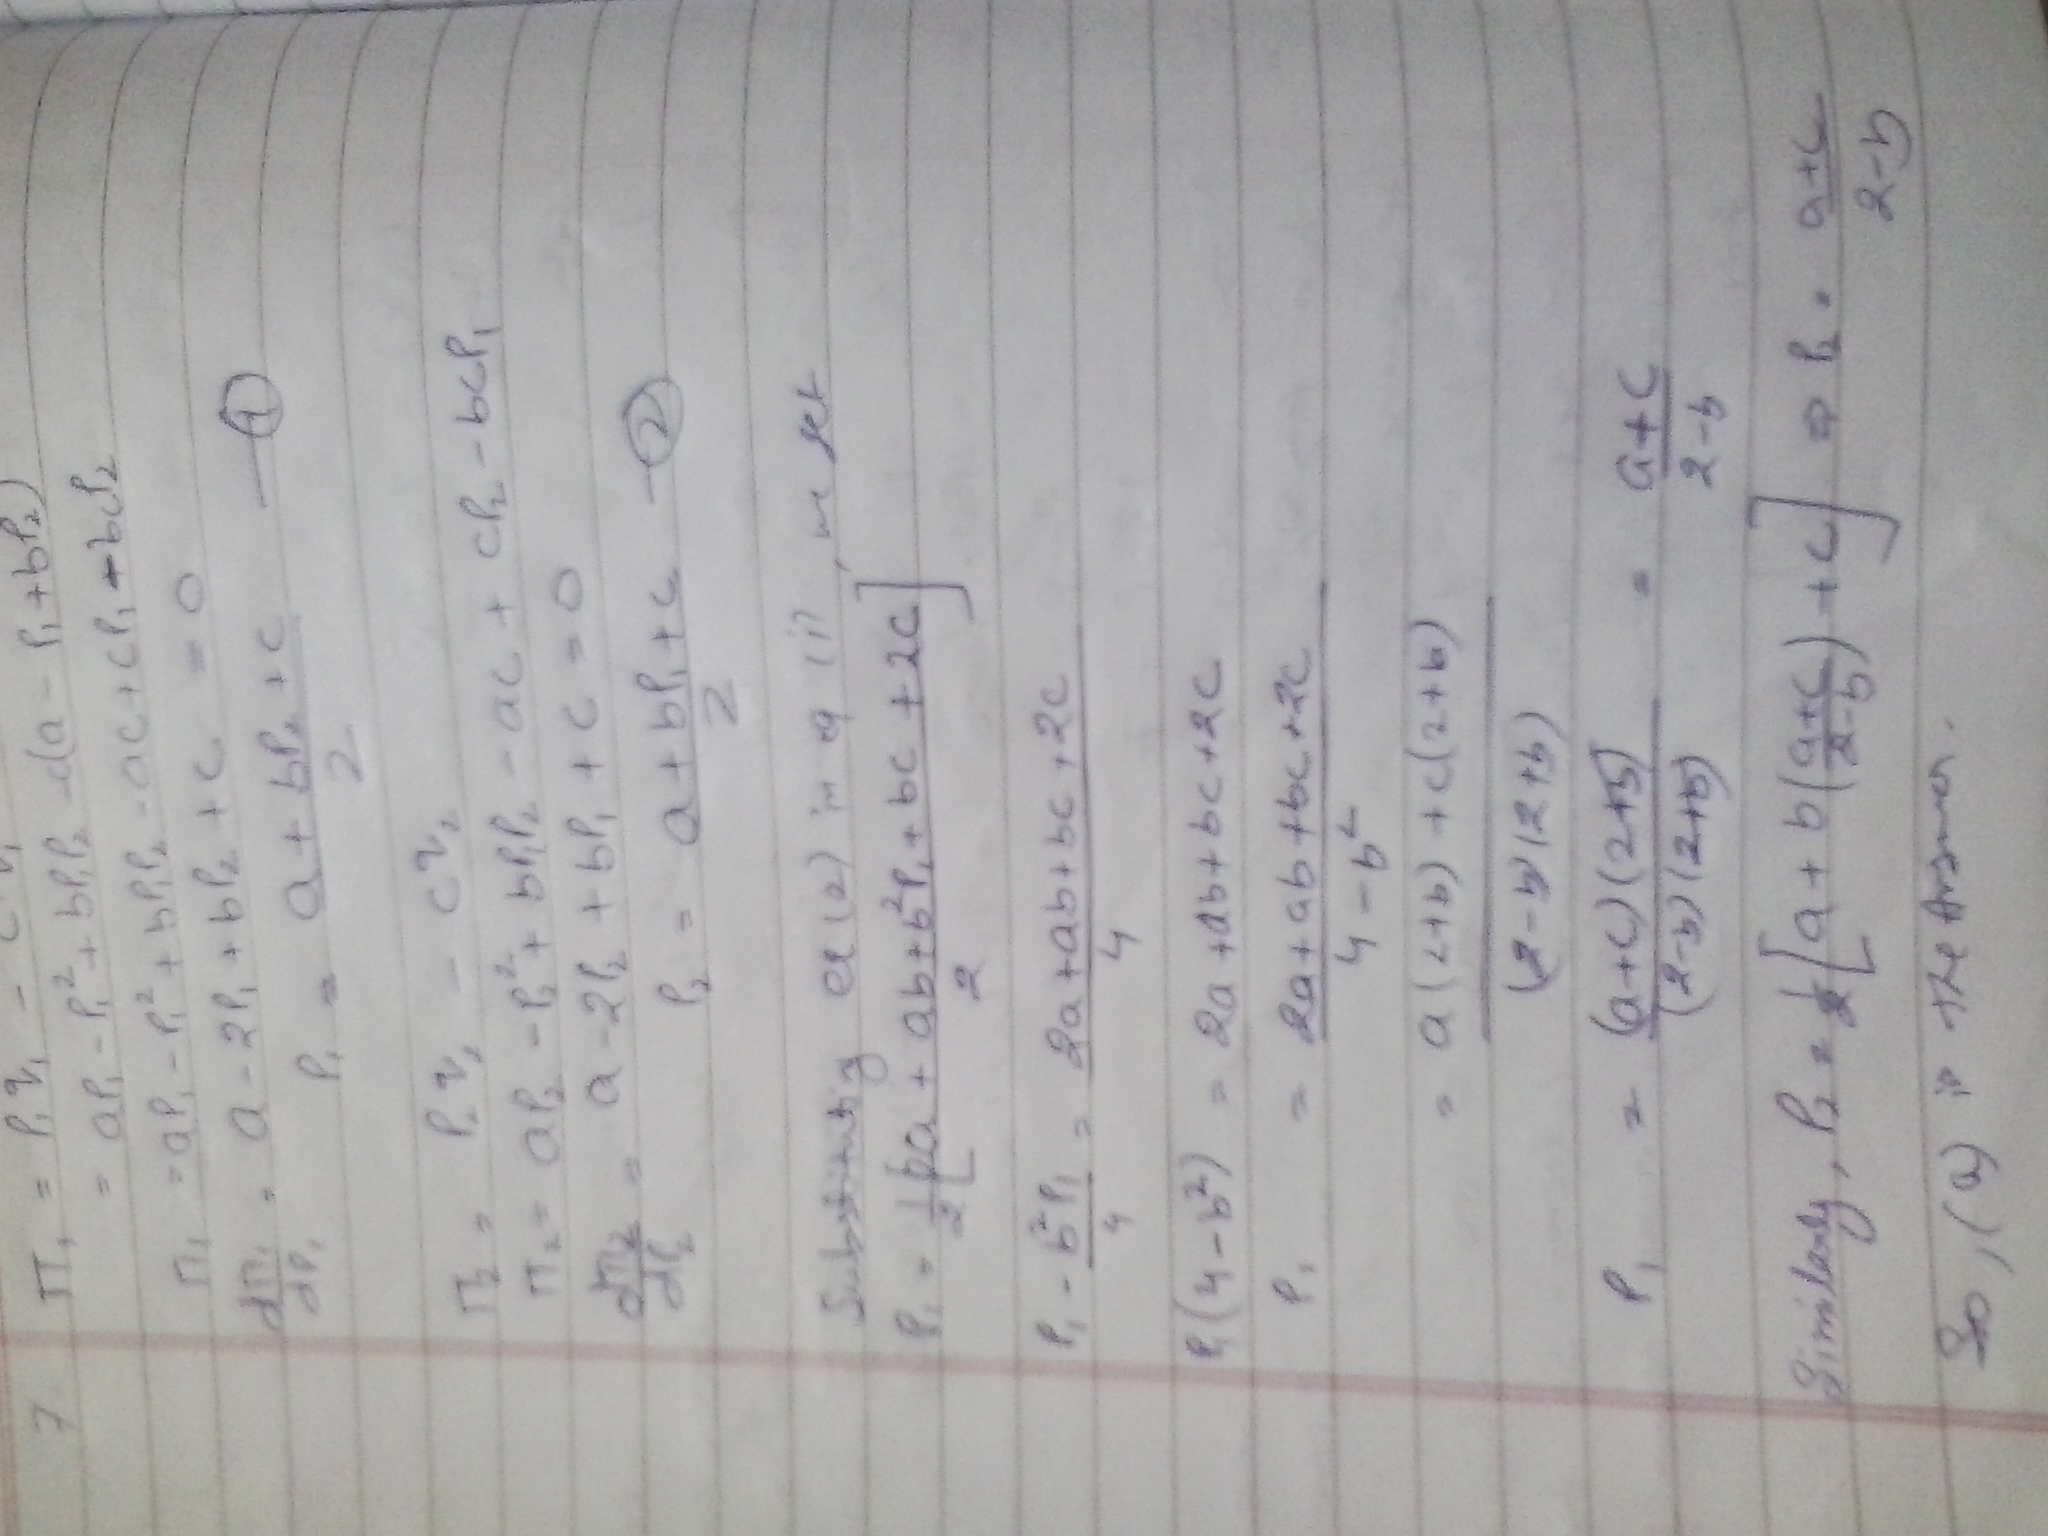 7 π₁ = P₁q₁ - cq₁
= aP₁ - P₁² + bP₁P₂ - c(a - P₁ + bP₂)
π₁ = aP₁ - P₁² + bP₁P₂ - ac + cP₁ - bcP₂
dπ₁/dP₁ = a - 2P₁ + bP₂ + c = 0
P₁ = (a + bP₂ + c)/2 — ①
π₂ = P₂q₂ - cq₂
π₂ = aP₂ - P₂² + bP₁P₂ - ac + cP₂ - bcP₁
dπ₂/dP₂ = a - 2P₂ + bP₁ + c = 0
P₂ = (a + bP₁ + c)/2 — ②
Substituting eq (2) in eq (i), we get
P₁ = 1/2 [(2a + ab + b²P₁ + bc + 2c)/2]
P₁ - b²P₁/4 = (2a + ab + bc + 2c)/4
P₁(4 - b²) = 2a + ab + bc + 2c
P₁ = (2a + ab + bc + 2c)/(4 - b²)
= (a(2+b) + c(2+b))/((2-b)(2+b))
P₁ = ((a+c)(2+b))/((2-b)(2+b)) = (a+c)/(2-b)
Similarly, P₂ = 1/2 [a + b((a+c)/(2-b)) + c] ⇒ P₂ = (a+c)/(2-b)
So, (a) is the Answer.